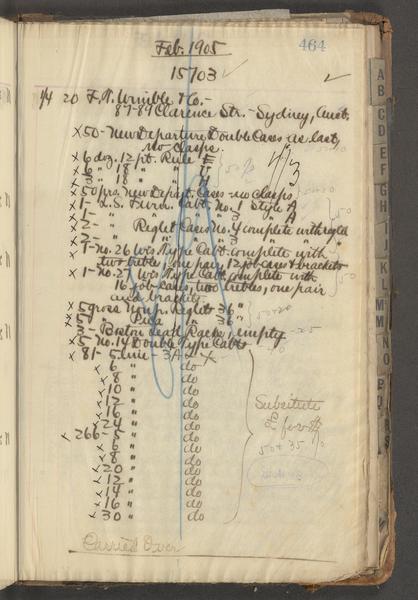 Feb. 1905
464
15703
1/4 20 F. T. Wimble & Co. -
87-89 Clarence Str. - Sydney, Aust.
x50 - New Departure Double Cases as last
no clasps.
x6 doz. 12 pt. Rule E
x6 " 18 " "
x3 " 18 " "
x50 prs. New Depart. Cases no Clasps
x1 - L.S. Furn. Cabt. No. 1 Style A
x1 - " " " " 3 " A
x2 - Reglet Cases No. 4 complete with reglet
x2 - " " " " " "
x1 - no. 26 Wis. Type Cabt. complete with
two bibles, one pair, 12 job cases & brackets
x1 - No. 27 Wis. Type Cabt. complete with
16 job cases, two bibles, one pair
and brackets
x5 gross Nonp. Reglet 36"
x5 " Pica " 36"
x3 - Boston Lead Racks, empty
x5 no. 14 Double Type Cabts
x81 - 5 line - 3A x
x 6 " do
x 8 " do
x 10 " do
x 12 " do
x 16 " do
x 24 " do
x266 - 5 " do
x 6 " do
x 8 " do
x 20 " do
x 12 " do
x 14 " do
x 16 " do
x 30 " do
Substitute
50 & 35
Carried Over
A
B
C
D
E
F
G
H
I
J
K
L
M
M
N
O
P
Q
R
S